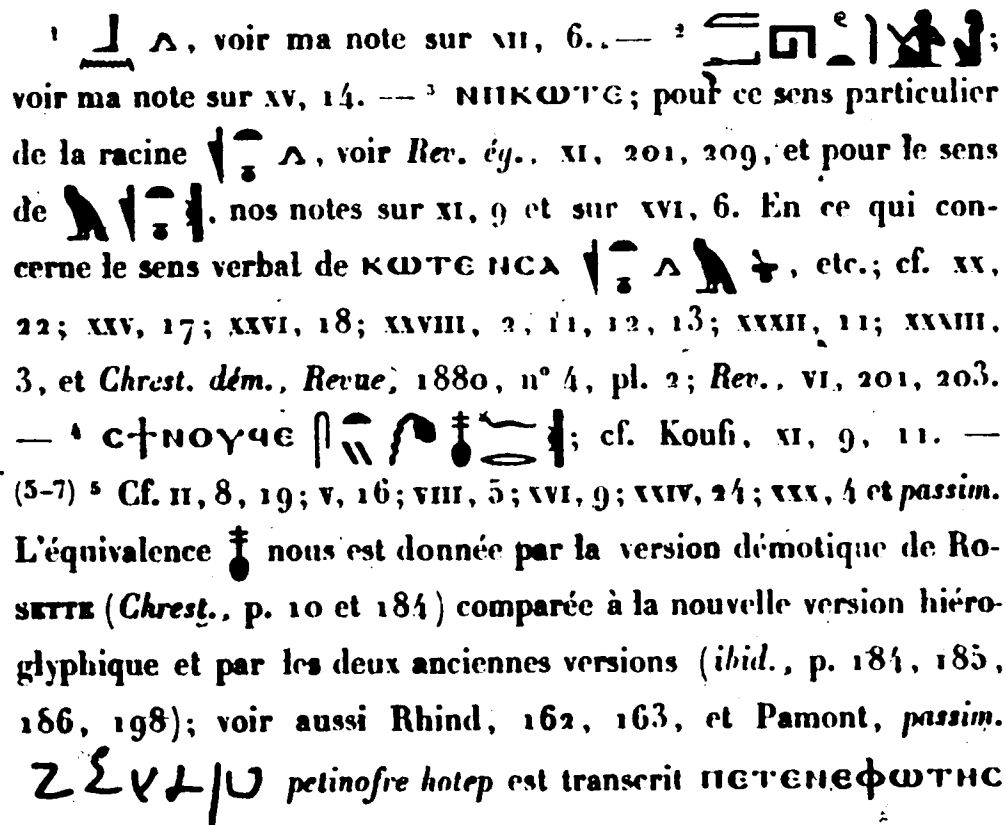 ¹ , voir ma note sur XII, 6.. — ² ;
voir ma note sur XV, 14. — ³ ⲚⲠⲔⲰⲦⲈ; pour ce sens particulier
de la racine , voir Rev. ég., XI, 201, 209, et pour le sens
de , nos notes sur XI, 9 et sur XVI, 6. En ce qui con-
cerne le sens verbal de ⲔⲰⲦⲈ ⲚⲤⲀ , etc.; cf. XX,
22; XXV, 17; XXVI, 18; XXVIII, 2, 11, 12, 13; XXXII, 11; XXXIII,
3, et Chrest. dém., Revue, 1880, n° 4, pl. 2; Rev., VI, 201, 203.
— ⁴ ⲤϮⲚⲞⲨϤⲈ ; cf. Koufi, XI, 9, 11. —
(5-7) ⁵ Cf. II, 8, 19; V, 16; VIII, 5; XVI, 9; XXIV, 24; XXX, 4 et passim.
L'équivalence nous est donnée par la version démotique de Ro-
SETTE (Chrest., p. 10 et 184) comparée à la nouvelle version hiéro-
glyphique et par les deux anciennes versions (ibid., p. 184, 185,
186, 198); voir aussi Rhind, 162, 163, et Pamont, passim.
petinofre hotep est transcrit ⲠⲈⲦⲈⲚⲈⲪⲰⲦⲎⲤ